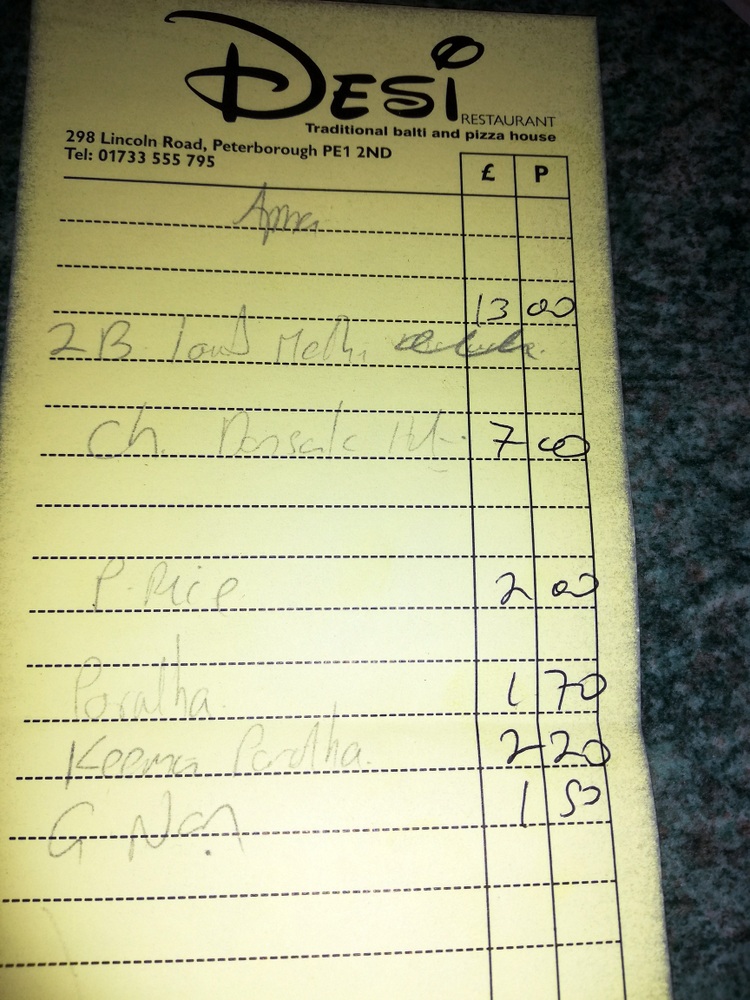 DESI
RESTAURANT
Traditional balti and pizza house
298 Lincoln Road, Peterborough PE1 2ND
Tel: 01733 555 795
£ P
13 00
2 B Methi
Ch. 7 00
P. Rice 2 00
Paratha 1 70
Keema Paratha. 2 20
G Nan 1 50